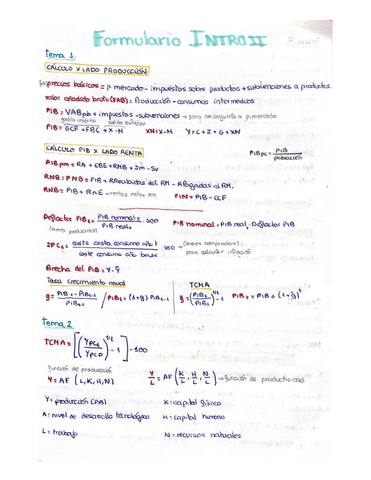 Formulario INTRO II
Tema 1.
CÁLCULO X LADO PRODUCCIÓN
precios básicos = p mercado - impuestos sobre productos + subvenciones a productos
valor añadido bruto (VAB) = Producción - consumos intermedios
PIB = VABpb + impuestos - subvenciones → para conseguirlo a p. mercado
gasto interno gasto exterior
PIB = GCF + FBC + X - M XN = X-M Y = C + I + G + XN
CÁLCULO PIB X LADO RENTA
PIBpc = PIB / población
PIBpm = RA + EBE + RNB + Im - Sv
RNB = PNB = PIB + RRecibidas del RM - RPagadas al RM.
RNB = PIB + RNE → rentas netas RM PIN = PIB - CCF
Deflactor PIBt = PIB nominal t / PIB real t . 100 PIB nominal = PIB real . Deflactor PIB
(bienes producidos)
IPCt = coste cesta consumo año t / coste consumo año base . 100 → (bienes comprados): para calcular inflación
Brecha del PIB = Y - Ŷ
Tasa crecimiento anual TCMA
g = PIBt - PIBt-1 / PIBt-1 / PIBt = (1+g) PIBt-1 g = (PIBt / PIB0)^1/t - 1 PIBt = PIB0 (1+g)^t
Tema 2
TCMA = [(YPCt / YPC0)^1/t - 1] . 100
función de producción
Y = AF (L, K, H, N) Y/L = AF (K/L, H/L, N/L) → función de productividad
Y = producción (PIB) K = capital físico
A = nivel de desarrollo tecnológico H = capital humano
L = trabajo N = recursos naturales